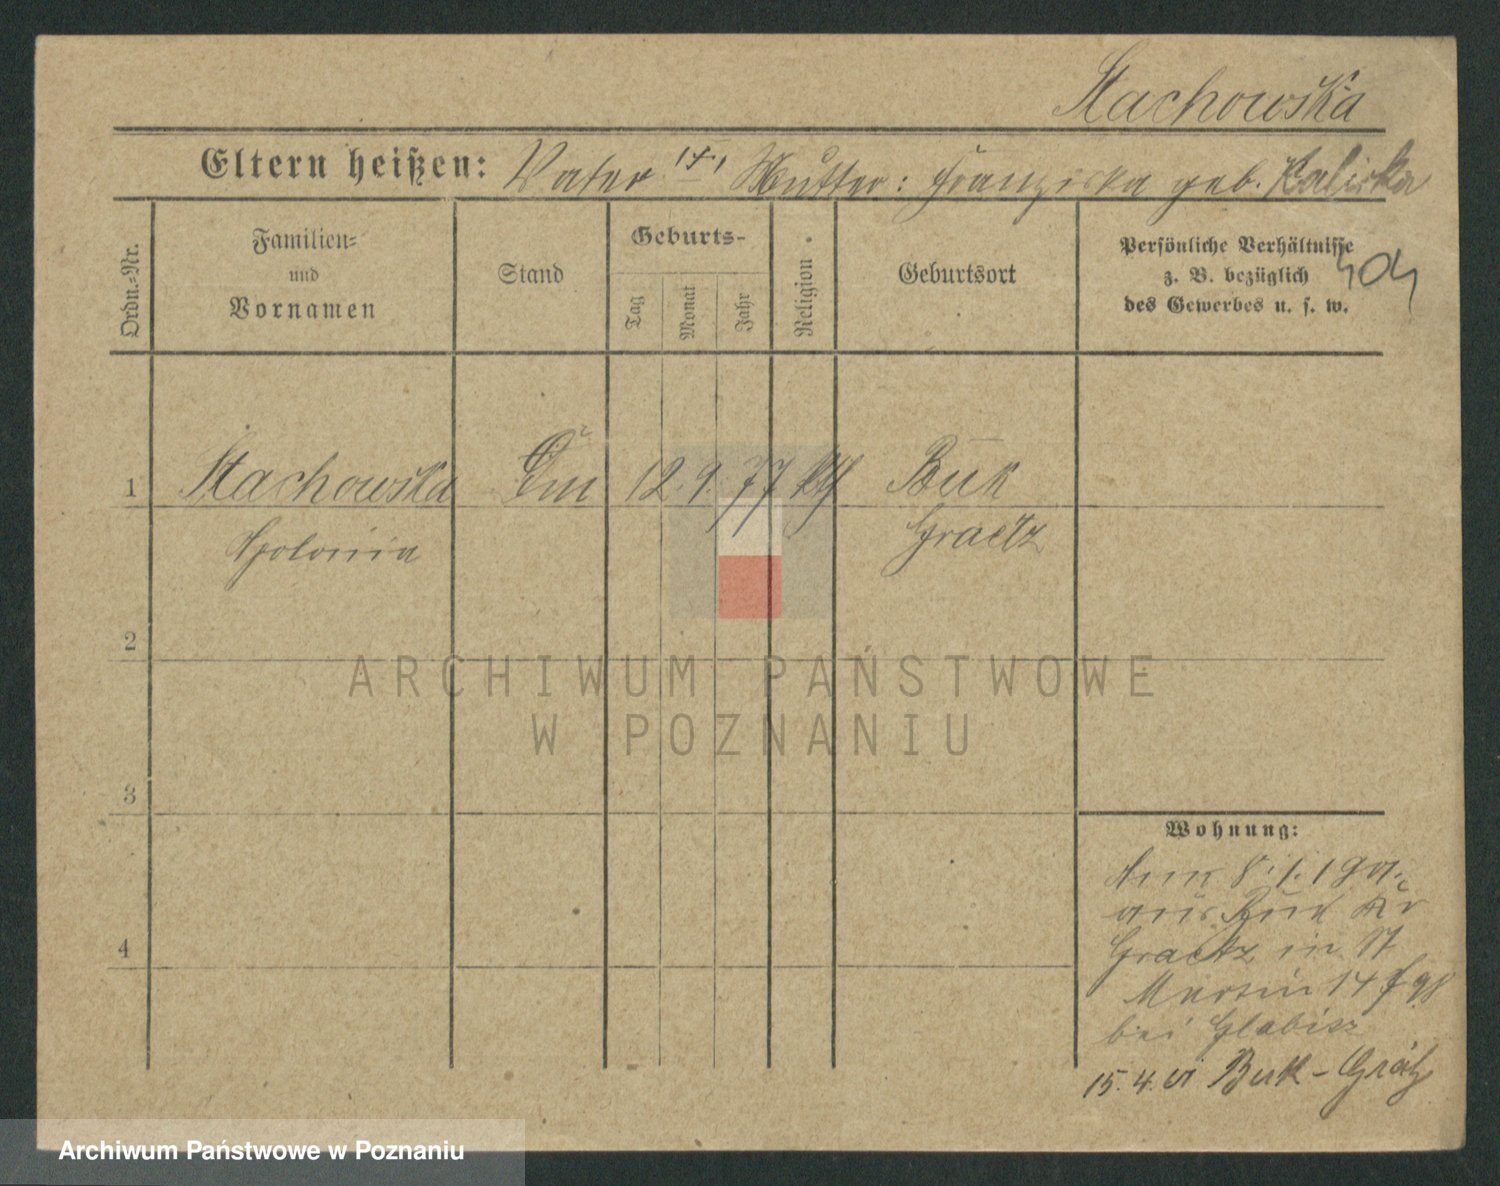 Stachowska
Eltern heißen: Vater "†" Mutter: Franziska geb. Kaliska
Ordn.-Nr.
Familien-
und
Vornamen
Stand
Geburts-
Tag
Monat
Jahr
Religion
Geburtsort
Persönliche Verhältnisse
z. B. bezüglich
des Gewerbes u. s. w.
1 Stachowska 12. 9. 77 kth Buk
Apolonia Graetz
2
3
4
ARCHIWUM PAŃSTWOWE
W POZNANIU
Wohnung:
8. 1. 1901.
aus Buk Kr
Graetz in St
Martin 14
bei Glabisz
15. 4. 01 Buk - Grätz
Archiwum Państwowe w Poznaniu